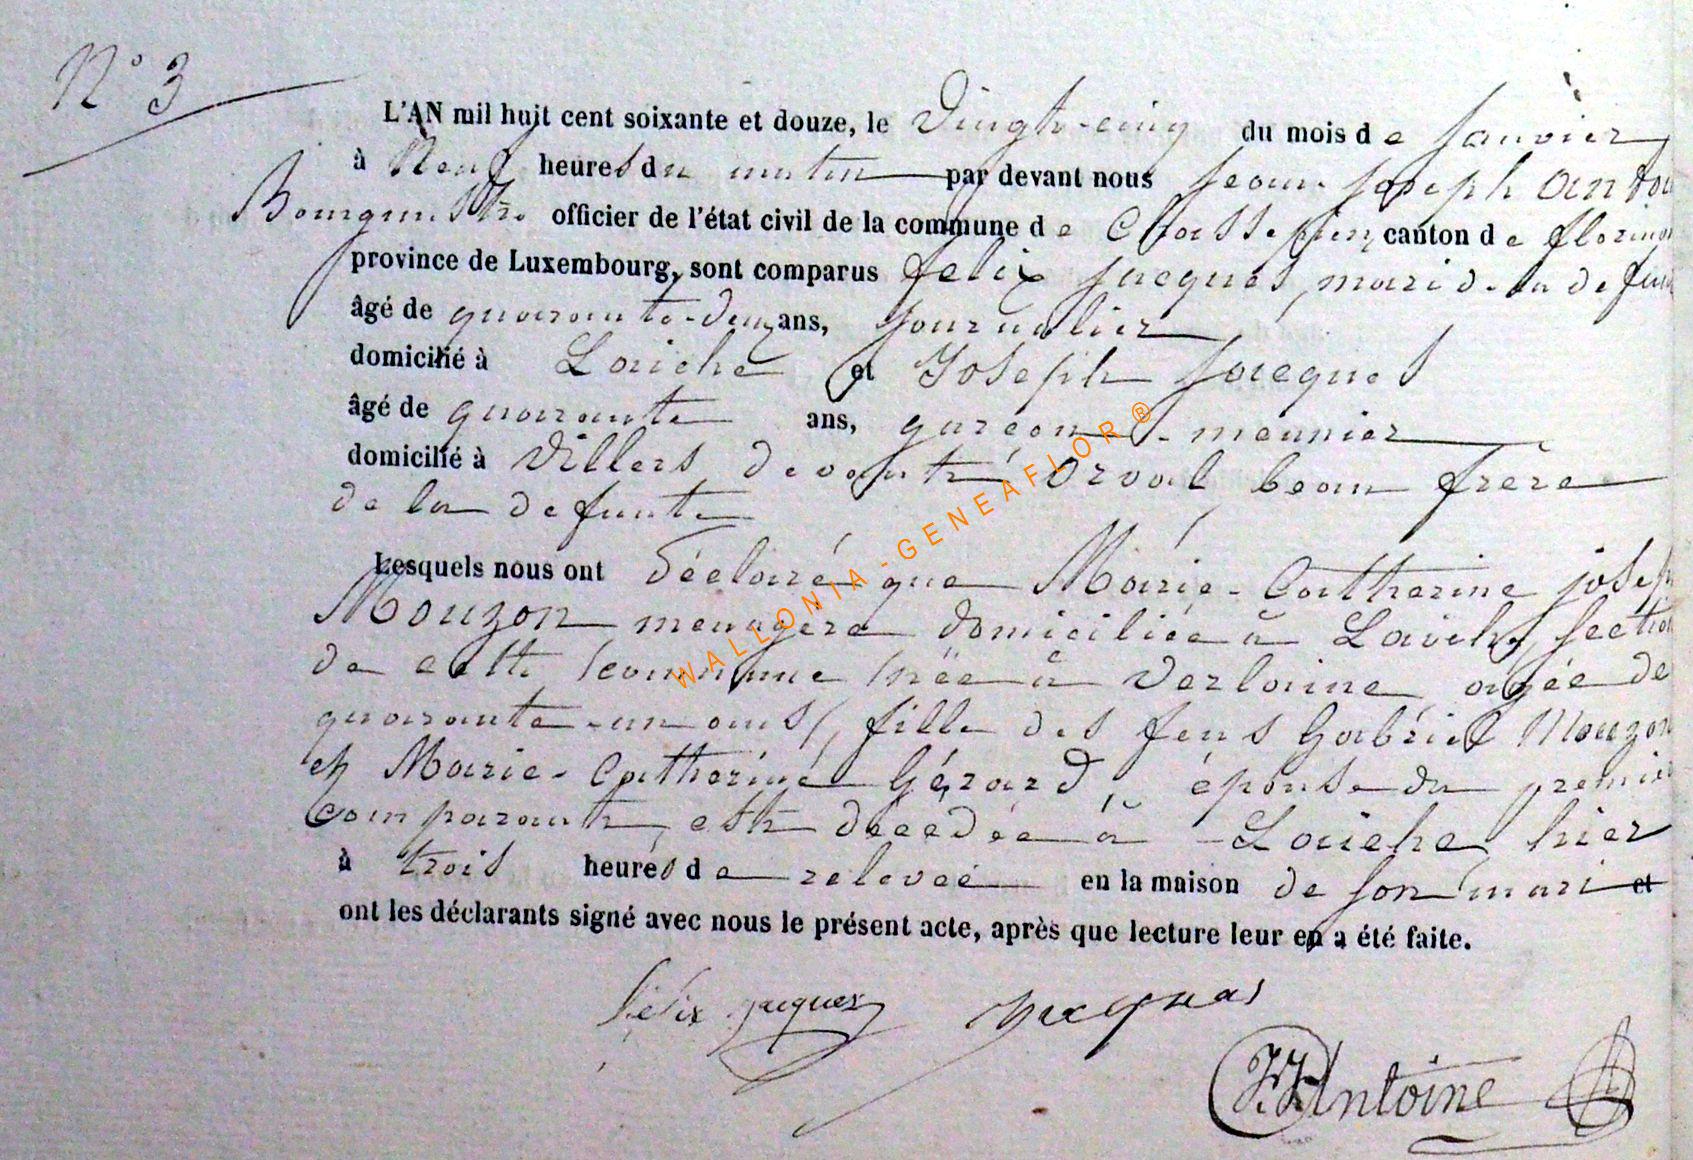 N° 3
L'AN mil huit cent soixante et douze, le vingt-cinq du mois de Janvier
à Neuf heures du matin par devant nous Jean Joseph Antoi
Bourgmestre officier de l'état civil de la commune de Chassepierre canton de Floren
province de Luxembourg, sont comparus Felix Jacques, mari de la defun
âgé de quarante-deux ans, Journalier
domicilié à Laiche et Joseph Jacques
âgé de quarante ans, garçon meunier
domicilié à Villers devant Orval, beau frère
de la defunte
Lesquels nous ont déclaré que Marie-Catherine josep
Mouzon menagère domiciliée à Laiche, section
de cette commune née à Verlaine, agée de
quarante-un ans, fille des feus Gabriel Mouzon
et Marie-Catherine Gérard, épouse du premier
comparant, est décédée à Laiche, hier
à trois heures de relevée en la maison de son mari et
ont les déclarants signé avec nous le présent acte, après que lecture leur en a été faite.
Félix jacques Jacques
J. J. Antoine
WALLONIA-GENEAFLOR®